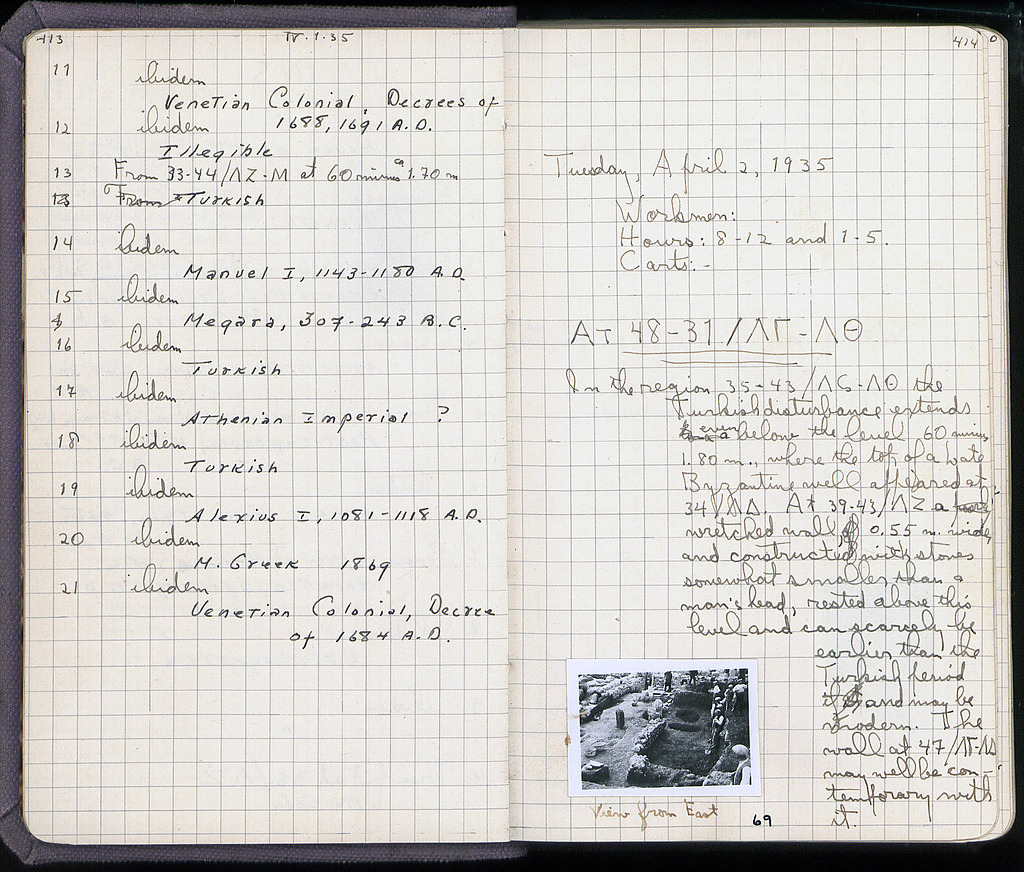 413
IV.1.35
11 ibidem
Venetian Colonial, Decrees of
12 ibidem 1688, 1691 A.D.
Illegible
13 From 33-44/ΛΖ-Μ at 60 minus 1.70 m
13 From Turkish
14 ibidem
Manuel I, 1143-1180 A.D.
15 ibidem
Megara, 307-243 B.C.
16 ibidem
Turkish
17 ibidem
Athenian Imperial ?
18 ibidem
Turkish
19 ibidem
Alexius I, 1081-1118 A.D.
20 ibidem
M. Greek 1869
21 ibidem
Venetian Colonial, Decree
of 1684 A.D.
414
Tuesday, April 2, 1935
Workmen:
Hours: 8-12 and 1-5.
Carts: -
At 48-31/ΛΓ-ΛΘ
In the region 35-43/ΛϚ-ΛΘ the
Turkish disturbance extends
even below the level 60 minus
1.80 m., where the top of a late
Byzantine well appeared at
34/ΛΔ. At 39-43/ΛΖ a
wretched wall, 0.55 m. wide,
and constructed with stones
somewhat smaller than a
man's head, rested above this
level and can scarcely be
earlier than the
Turkish period
and may be
modern. The
wall at 47/ΛΓ-ΛΔ
may well be con-
temporary with
it.
View from East
69